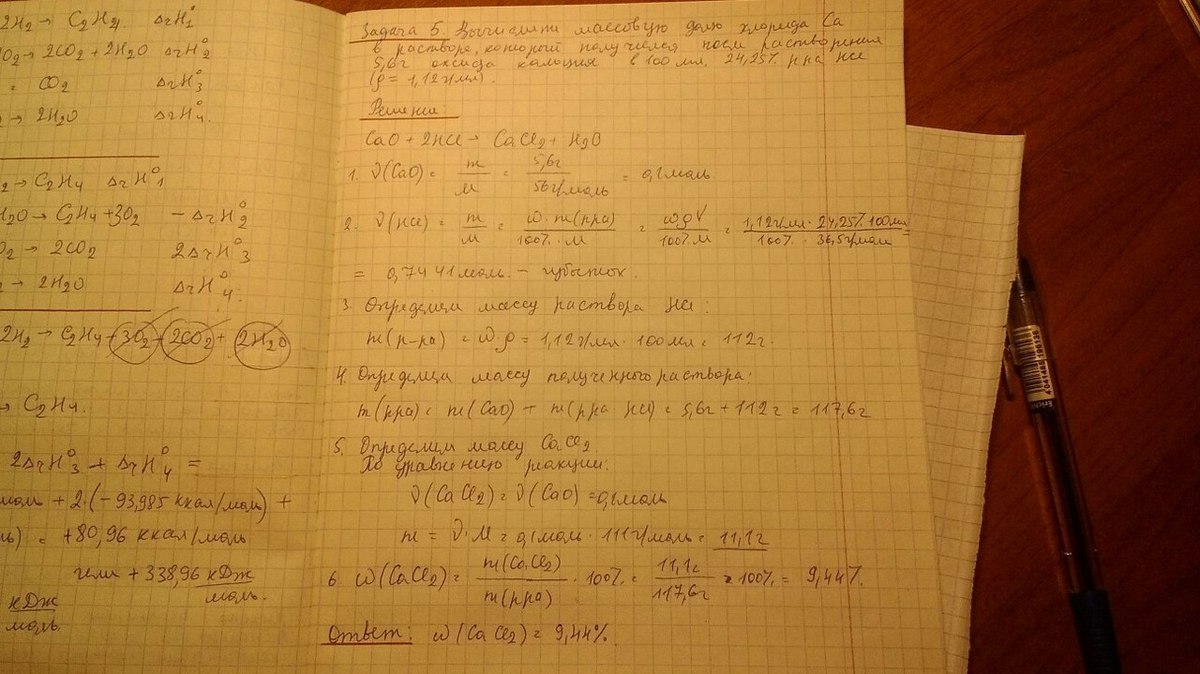 2H2 → C2H4 ΔrH°1
O2 → 2CO2 + 2H2O ΔrH°2
= CO2 ΔrH°3
→ 2H2O ΔrH°4.
2 → C2H4 ΔrH°1
H2O → C2H4 + 3O2 - ΔrH°2
O2 → 2CO2 2ΔrH°3
→ 2H2O ΔrH°4.
2H2 → C2H4 + 3O2 + 2CO2 + 2H2O
→ C2H4.
2ΔrH°3 + ΔrH°4 =
моль + 2·(-93,985 ккал/моль) +
ль) = +80,96 ккал/моль
или + 338,96 кДж/моль.
кДж/моль.
Задача 5. Вычислить массовую долю хлорида Ca
в растворе, который получился после растворения
5,6г оксида кальция в 100 мл. 24,25% р-ра HCl
(ρ = 1,12г/мл).
Решение:
CaO + 2HCl → CaCl2 + H2O
1. ν(CaO) = m/M = 5,6г/56г/моль = 0,1моль
2. ν(HCl) = m/M = ω·m(рра)/100%·M = ωρV/100%M = 1,12г/мл·24,25%·100мл/100%·36,5г/моль =
= 0,7441моль. – избыток.
3. Определим массу раствора HCl:
m(р-ра) = ω·ρ = 1,12г/мл·100мл = 112г.
4. Определим массу полученного раствора:
m(рра) = m(CaO) + m(рра HCl) = 5,6г + 112г = 117,6г
5. Определим массу CaCl2
По уравнению реакции:
ν(CaCl2) = ν(CaO) = 0,1моль
m = ν·M = 0,1моль·111г/моль = 11,1г
6. ω(CaCl2) = m(CaCl2)/m(рра)·100% = 11,1г/117,6г·100% = 9,44%.
Ответ: ω(CaCl2) = 9,44%.